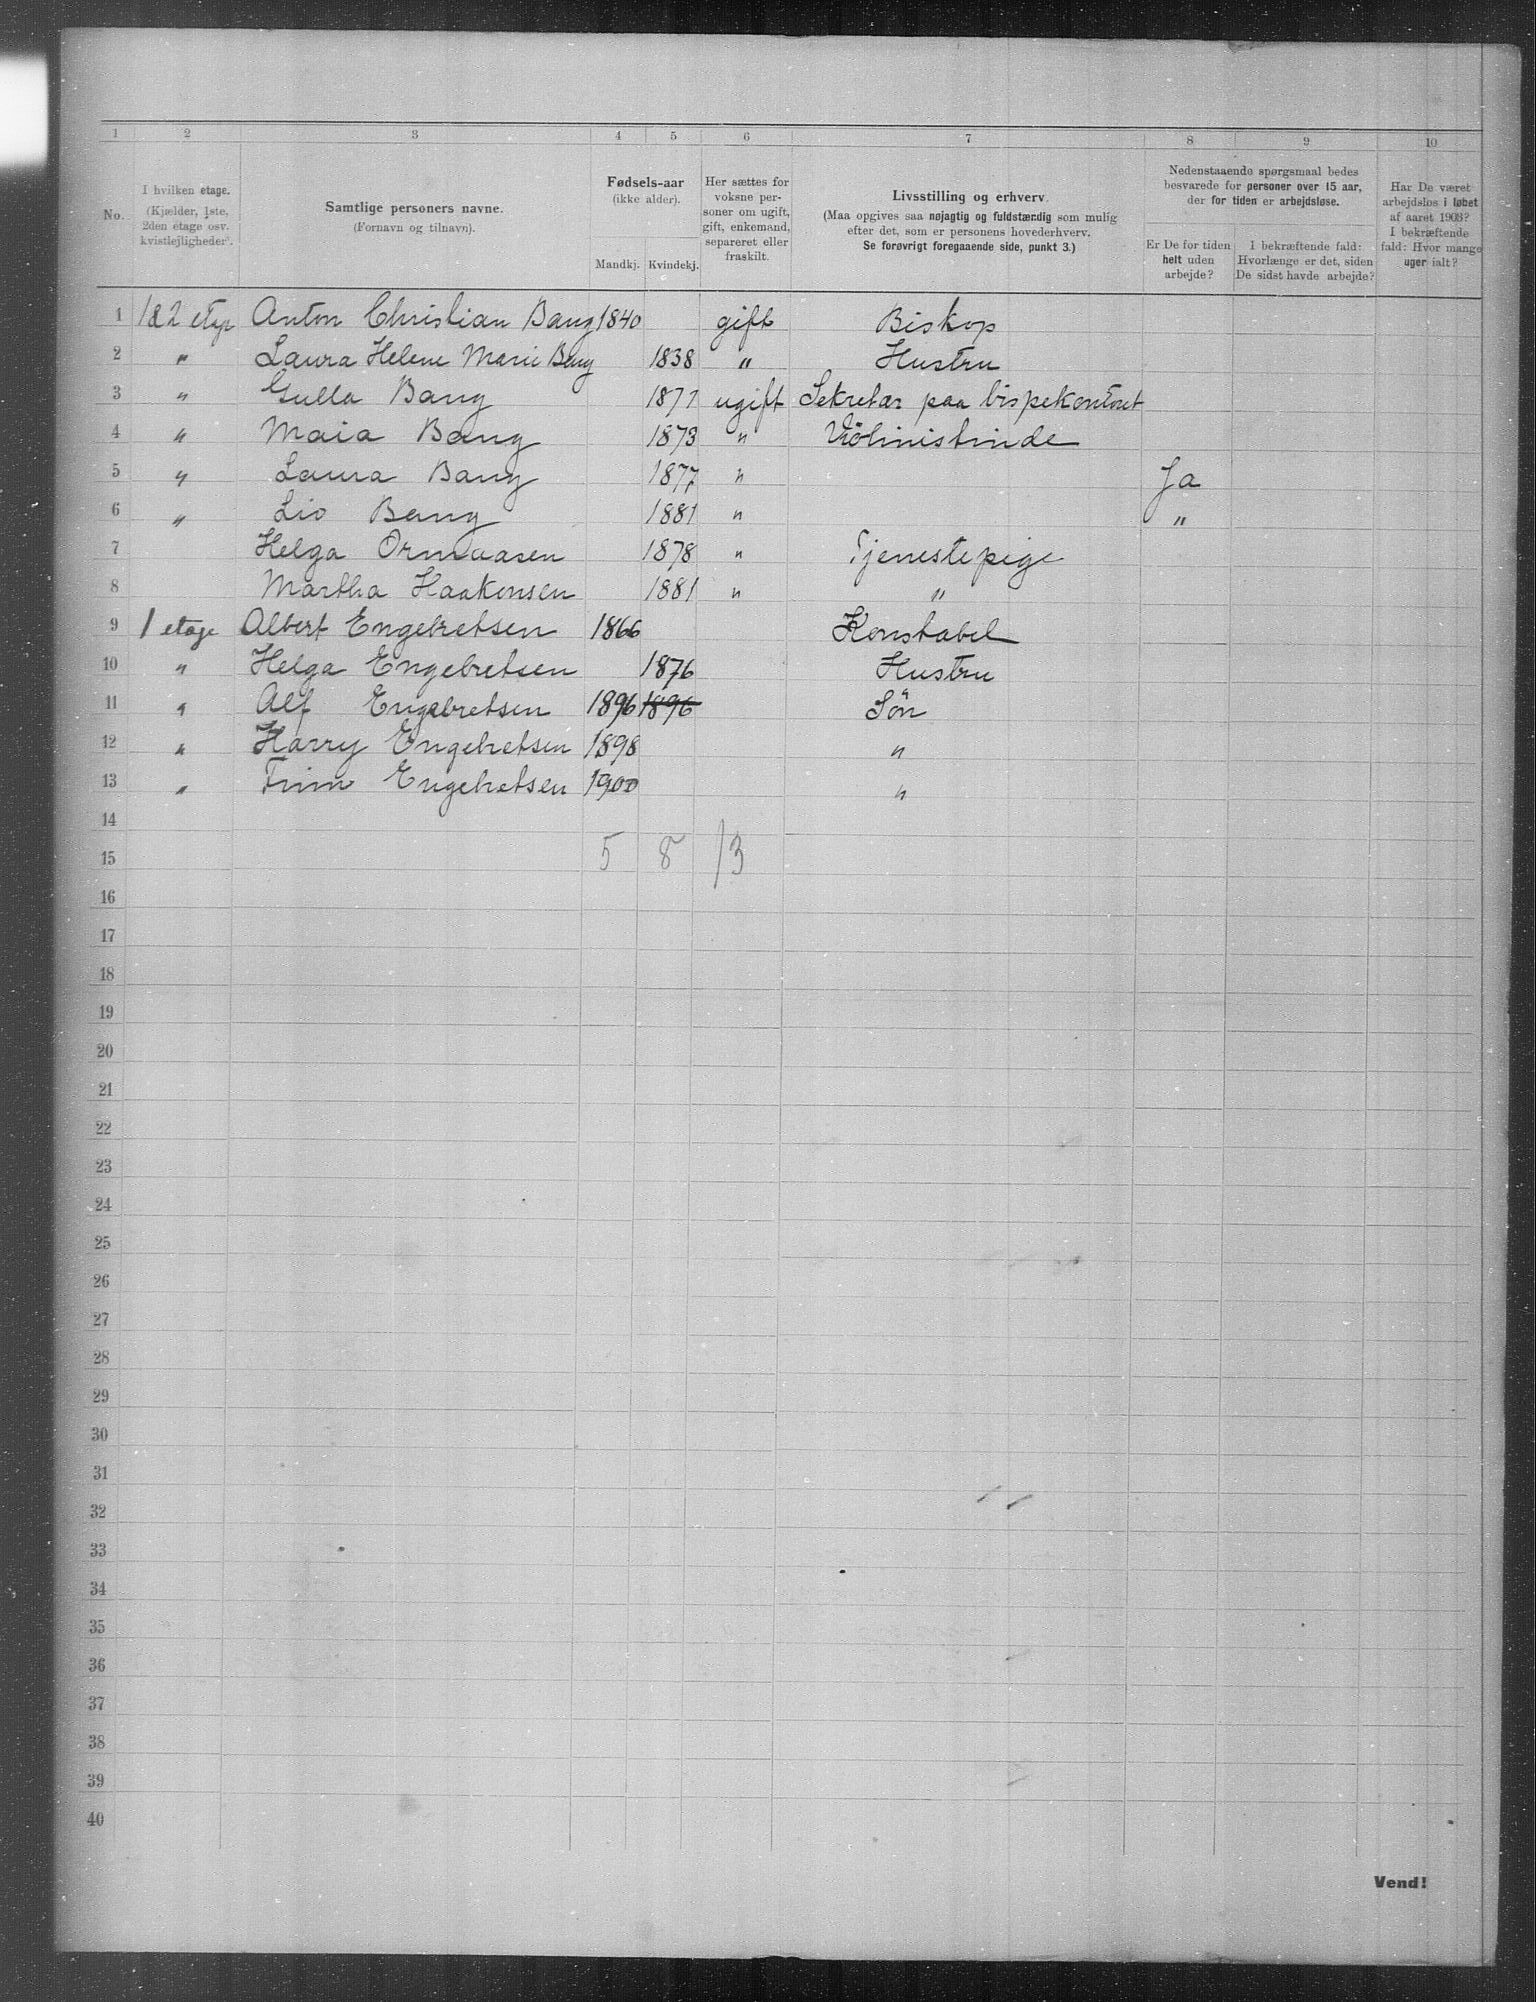 1 2 3 4 5 6 7 8 9 10
No. I hvilken etage. (Kjælder, 1ste, 2den etage osv. kvistlejligheder).
Samtlige personers navne. (Fornavn og tilnavn).
Fødsels-aar (ikke alder). Mandkj. Kvindekj.
Her sættes for voksne personer om ugift, gift, enkemand, separeret eller fraskilt.
Livsstilling og erhverv. (Maa opgives saa nøjagtig og fuldstændig som mulig efter det, som er personens hovederhverv. Se forøvrigt foregaaende side, punkt 3.)
Nedenstaaende spørgsmaal bedes besvarede for personer over 15 aar, der for tiden er arbejdsløse.
Er De for tiden helt uden arbejde?
I bekræftende fald: Hvorlænge er det, siden De sidst havde arbejde?
Har De været arbejdsløs i løbet af aaret 1903? I bekræftende fald: Hvor mange uger ialt?
1 1&2 etge Anton Christian Bang 1840 gift Biskop
2 " Laura Helene Marie Bang 1838 " Hustru
3 " Gulla Bang 1871 ugift Sekretær paa bispekontoret
4 " Maia Bang 1873 " Violinistinde
5 " Laura Bang 1877 " Ja
6 " Liv Bang 1881 " "
7 Helga Ormaasen 1878 " Tjenestepige
8 Martha Haakensen 1881 " "
9 1 etage Albert Engebretsen 1866 Konstabel
10 " Helga Engebretsen 1876 Hustru
11 " Alf Engebretsen 1896 1896 Søn
12 " Harry Engebretsen 1898 "
13 " Finn Engebretsen 1900 "
14
15 5 8 13
16
17
18
19
20
21
22
23
24
25
26
27
28
29
30
31
32
33
34
35
36
37
38
39
40
Vend!